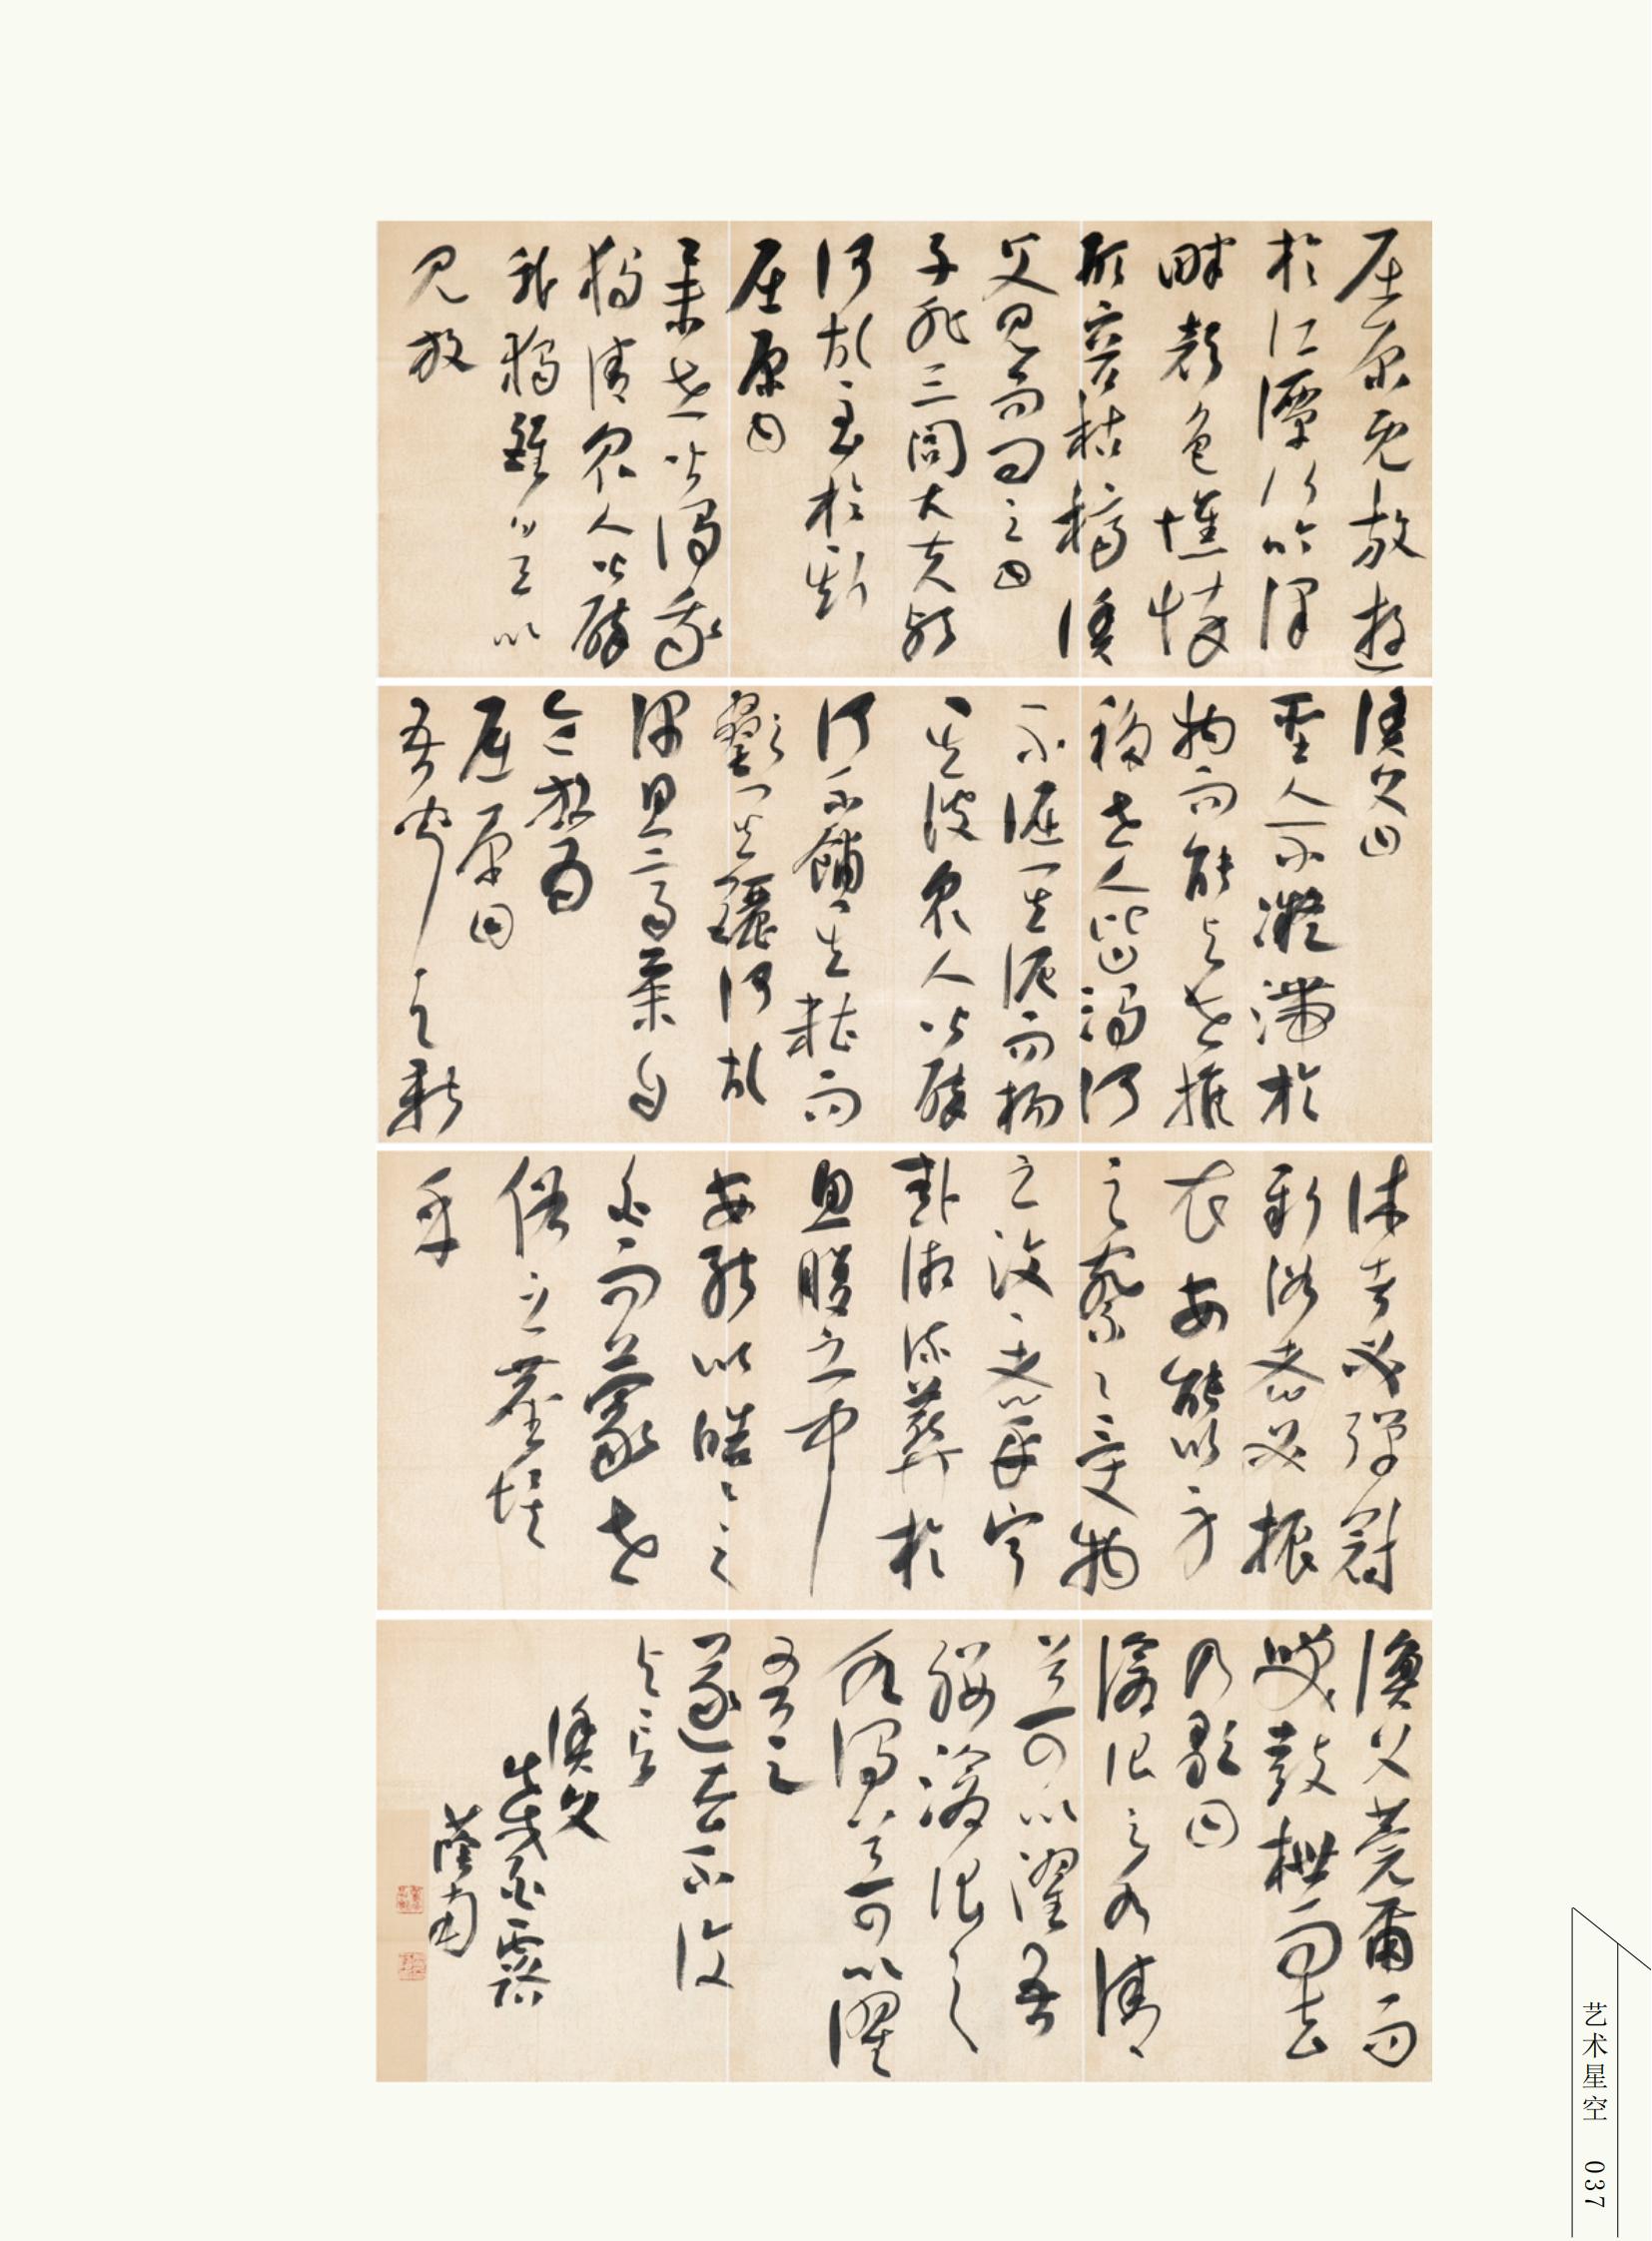 屈原既放遊
於江潭行吟澤
畔顏色憔悴
形容枯槁漁
父見而問之曰
子非三閭大夫歟
何故至於斯
屈原曰
舉世皆濁我
獨清眾人皆醉
我獨醒是以
見放
漁父曰
聖人不凝滯於
物而能與世推
移世人皆濁何
不淈其泥而揚
其波眾人皆醉
何不餔其糟而
歠其醨何故
深思高舉自
令放為
屈原曰
吾聞之新
沐者必彈冠
新浴者必振
衣安能以身
之察察受物
之汶汶者乎寧
赴湘流葬於
魚腹之中
安能以皓皓之
白而蒙世
俗之塵埃
乎
漁父莞爾而
笑鼓枻而去
乃歌曰
滄浪之水清
兮可以濯吾
纓滄浪之
水濁兮可以濯
吾足
遂去不復
與言
漁父
艺术星空 037